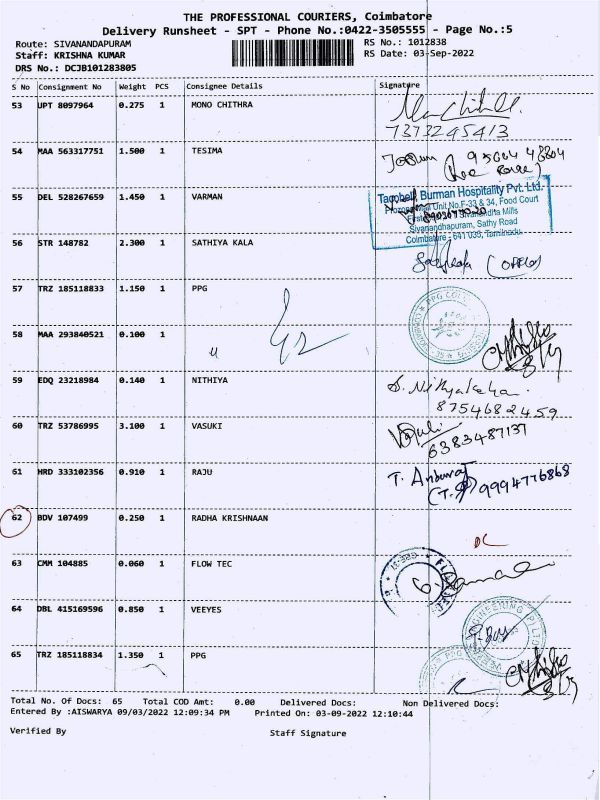 THE PROFESSIONAL COURIERS, Coimbatore
Delivery Runsheet - SPT - Phone No.:0422-3505555 - Page No.:5
Route: SIVANANDAPURAM
RS No.: 1012838
Staff: KRISHNA KUMAR
RS Date: 03-Sep-2022
DRS No.: DCJB101283805
S No Consignment No Weight PCS Consignee Details Signature
53 UPT 8097964 0.275 1 MONO CHITHRA
7373295413
54 MAA 563317751 1.500 1 TESIMA
55 DEL 528267659 1.450 1 VARMAN
Tacobell, Burman Hospitality Pvt. Ltd.
Unit No.F-33 & 34, Food Court
Mills
Sivanandhapuram, Sathy Road
Coimbatore - 641 035, Tamilnadu
56 STR 148782 2.300 1 SATHIYA KALA
(office)
57 TRZ 185118833 1.150 1 PPG
58 MAA 293840521 0.100 1
59 EDQ 23218984 0.140 1 NITHIYA
8754682459
60 TRZ 53786995 3.100 1 VASUKI
6383487137
61 HRD 333102356 0.910 1 RAJU
T. Anburaj
9994776868
62 BDV 107499 0.250 1 RADHA KRISHNAAN
63 CMM 104885 0.060 1 FLOW TEC
64 DBL 415169596 0.850 1 VEEYES
65 TRZ 185118834 1.350 1 PPG
Total No. Of Docs: 65 Total COD Amt: 0.00 Delivered Docs: Non Delivered Docs:
Entered By :AISWARYA 09/03/2022 12:09:34 PM Printed On: 03-09-2022 12:10:44
Verified By Staff Signature